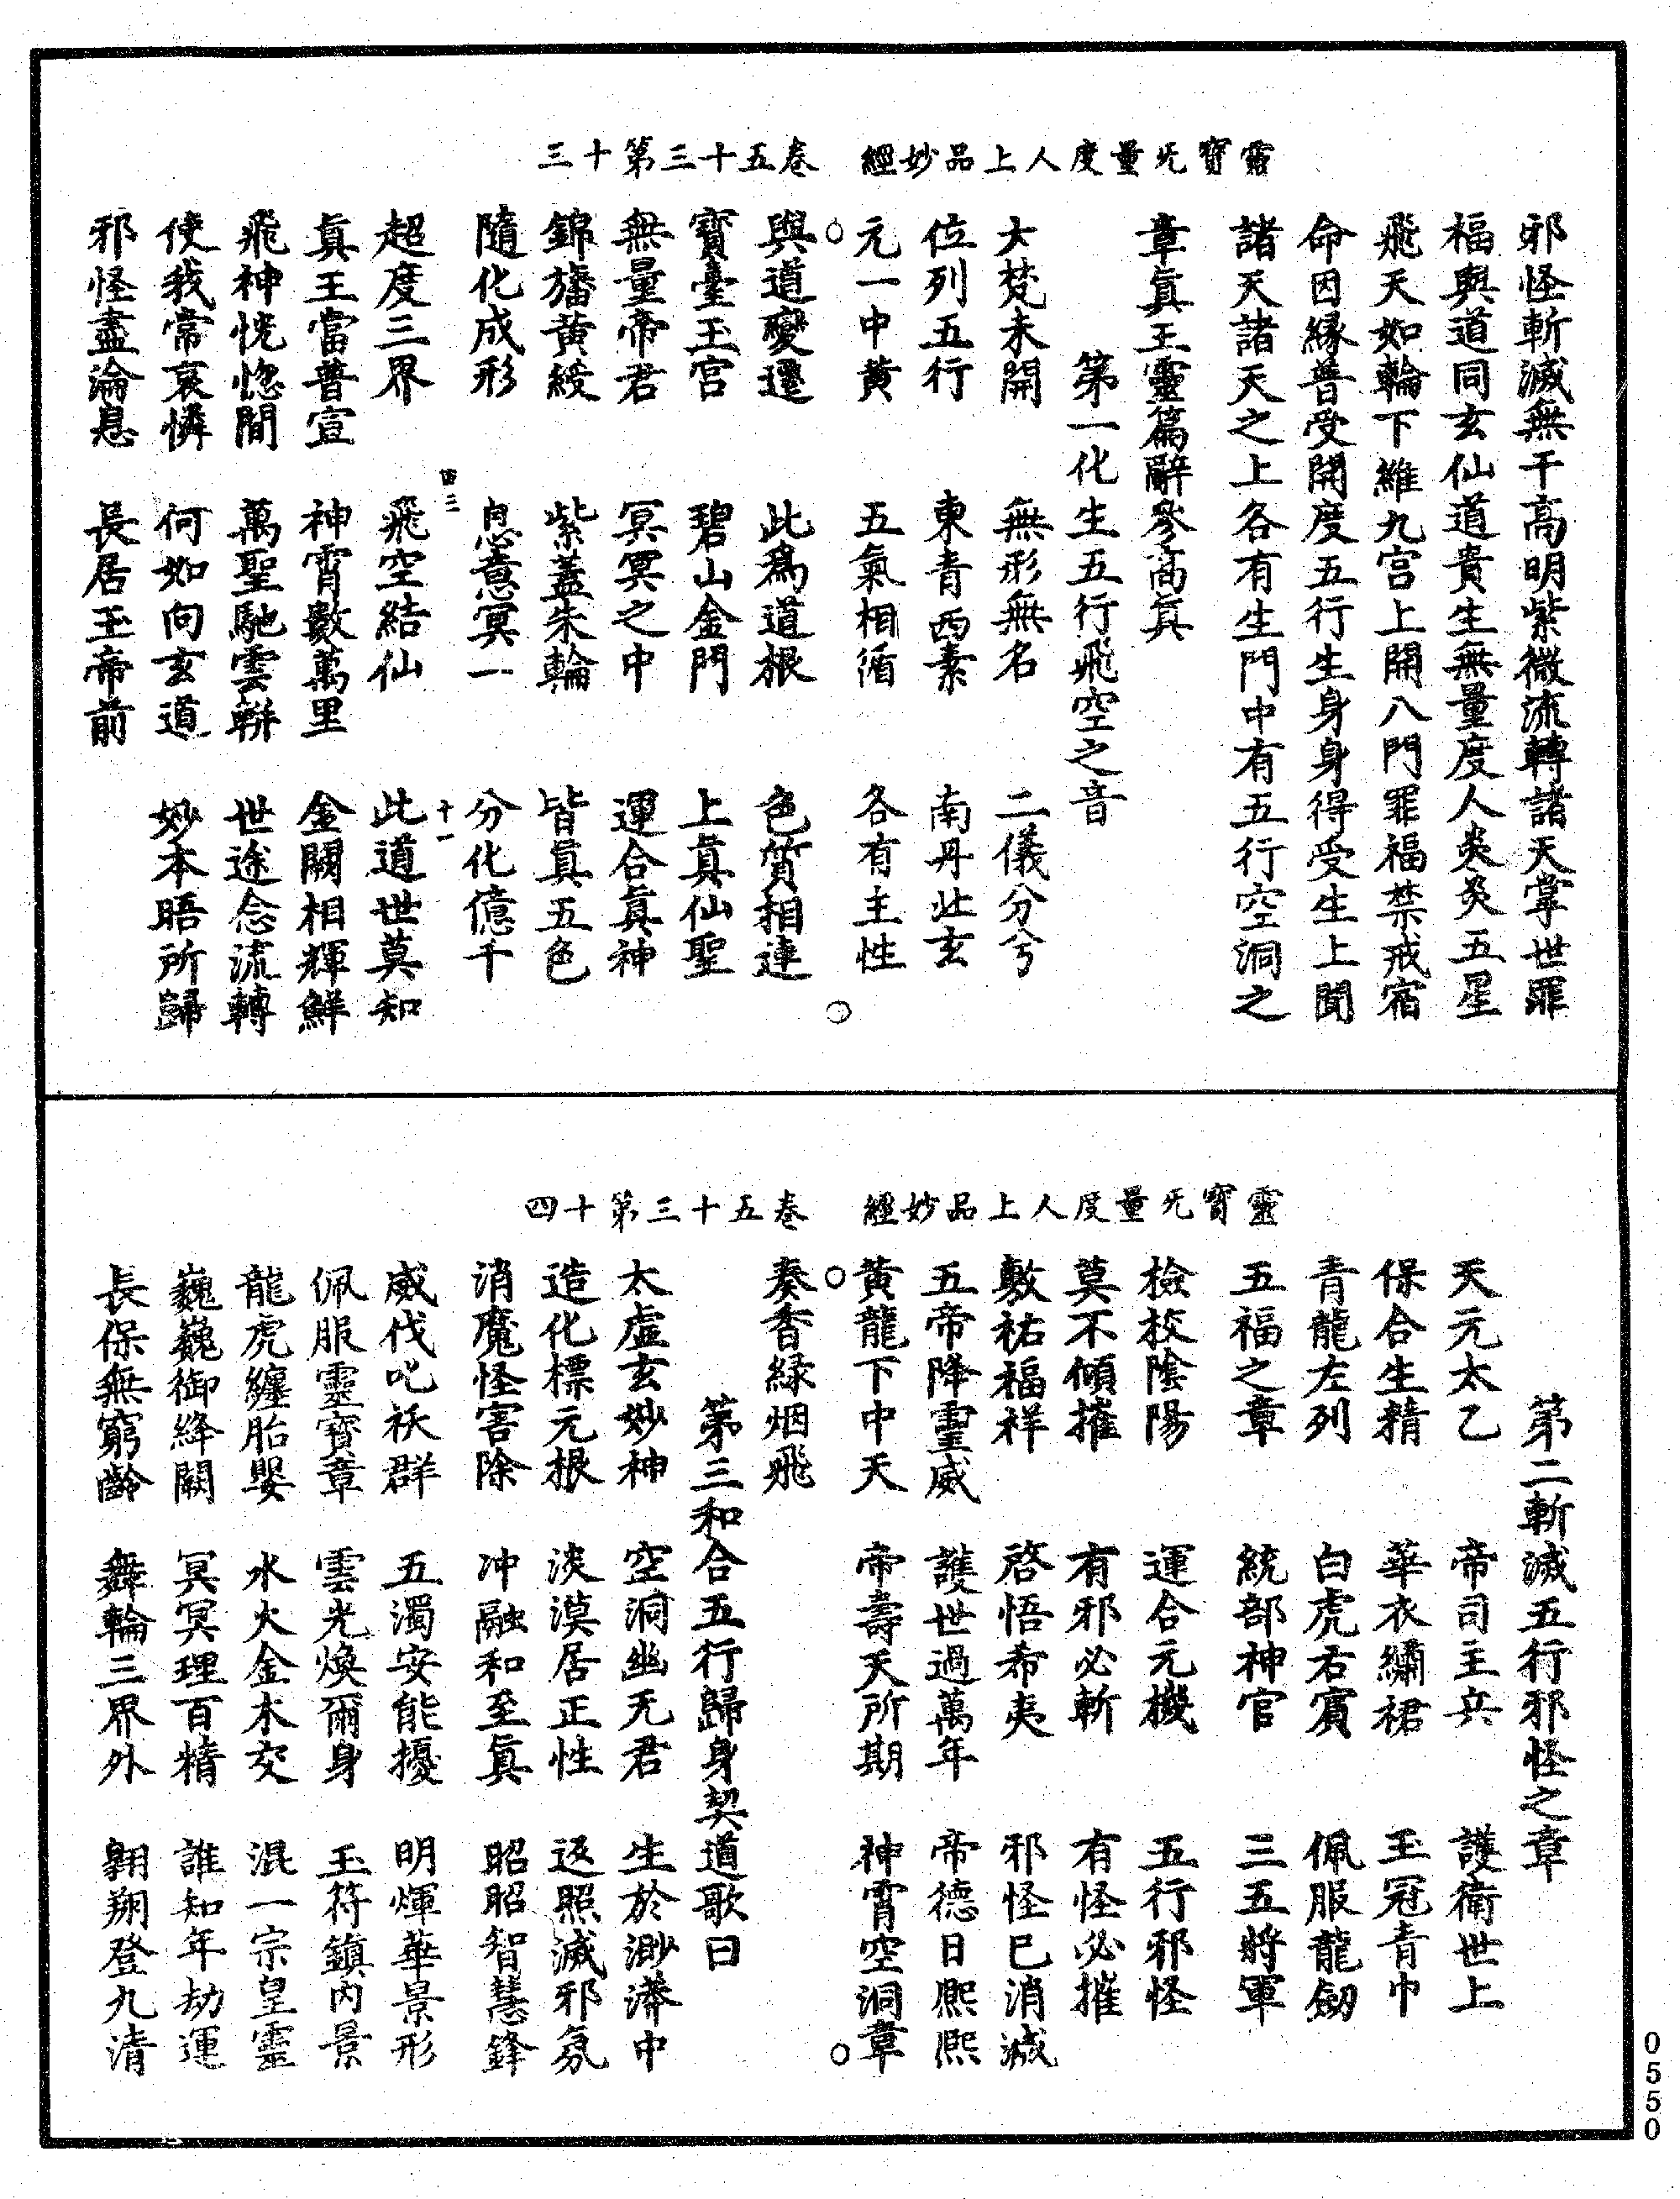 靈寶无量度人上品妙經　卷五十三第十三
邪怪斬滅無干高明紫微流轉諸天掌世罪
福與道同玄仙道貴生無量度人炎炎五星
飛天如輪下維九宫上開八門罪福禁戒宿
命因緣普受開度五行生身身得受生上聞
諸天諸天之上各有生門中有五行空洞之
章眞王靈篇辭參高眞
第一化生五行飛空之音
大梵未開　無形無名　二儀分兮
位列五行　東青西素　南丹北玄
元一中黄　五氣相循　各有主性
與道變遷　此爲道根　色質相連
寶臺玉宫　碧山金門　上眞仙聖
無量帝君　冥冥之中　運合眞神
錦旛黄綬　紫蓋朱輪　皆眞五色
隨化成形　息意冥一　分化億千
四三　十一
超度三界　飛空結仙　此道世莫知
眞王當普宣　神霄數萬里　金闕相輝鮮
飛神恍惚間　萬聖馳雲輧　世途念流轉
使我常哀憐　何如向玄道　妙本晤所歸
邪怪盡淪息　長居玉帝前
靈寶无量度人上品妙經　卷五十三第十四
第二斬滅五行邪怪之章
天元太乙　帝司主兵　護衛世上
保合生精　華衣繡裙　玉冠青巾
青龍左列　白虎右賓　佩服龍劒
五福之章　統部神官　三五將軍
檢校陰陽　運合元機　五行邪怪
莫不傾摧　有邪必斬　有怪必摧
敷祐福祥　啓悟希夷　邪怪已消滅
五帝降靈威　護世過萬年　帝德日熙熙
黄龍下中天　帝壽天所期　神霄空洞章
奏香緑烟飛
第三和合五行歸身契道歌曰
太虛玄妙神　空洞幽无君　生於渺漭中
造化標元根　淡漠居正性　返照滅邪氛
消魔怪害除　冲融和至眞　昭昭智慧鋒
威伐叱袄群　五濁安能擾　明煇華景形
佩服靈寶章　雲光煥爾身　玉符鎮内景
龍虎纏胎嬰　水火金木交　混一宗皇靈
巍巍御絳闕　冥冥理百精　誰知年劫運
長保無窮齡　舞輪三界外　翱翔登九清
0550